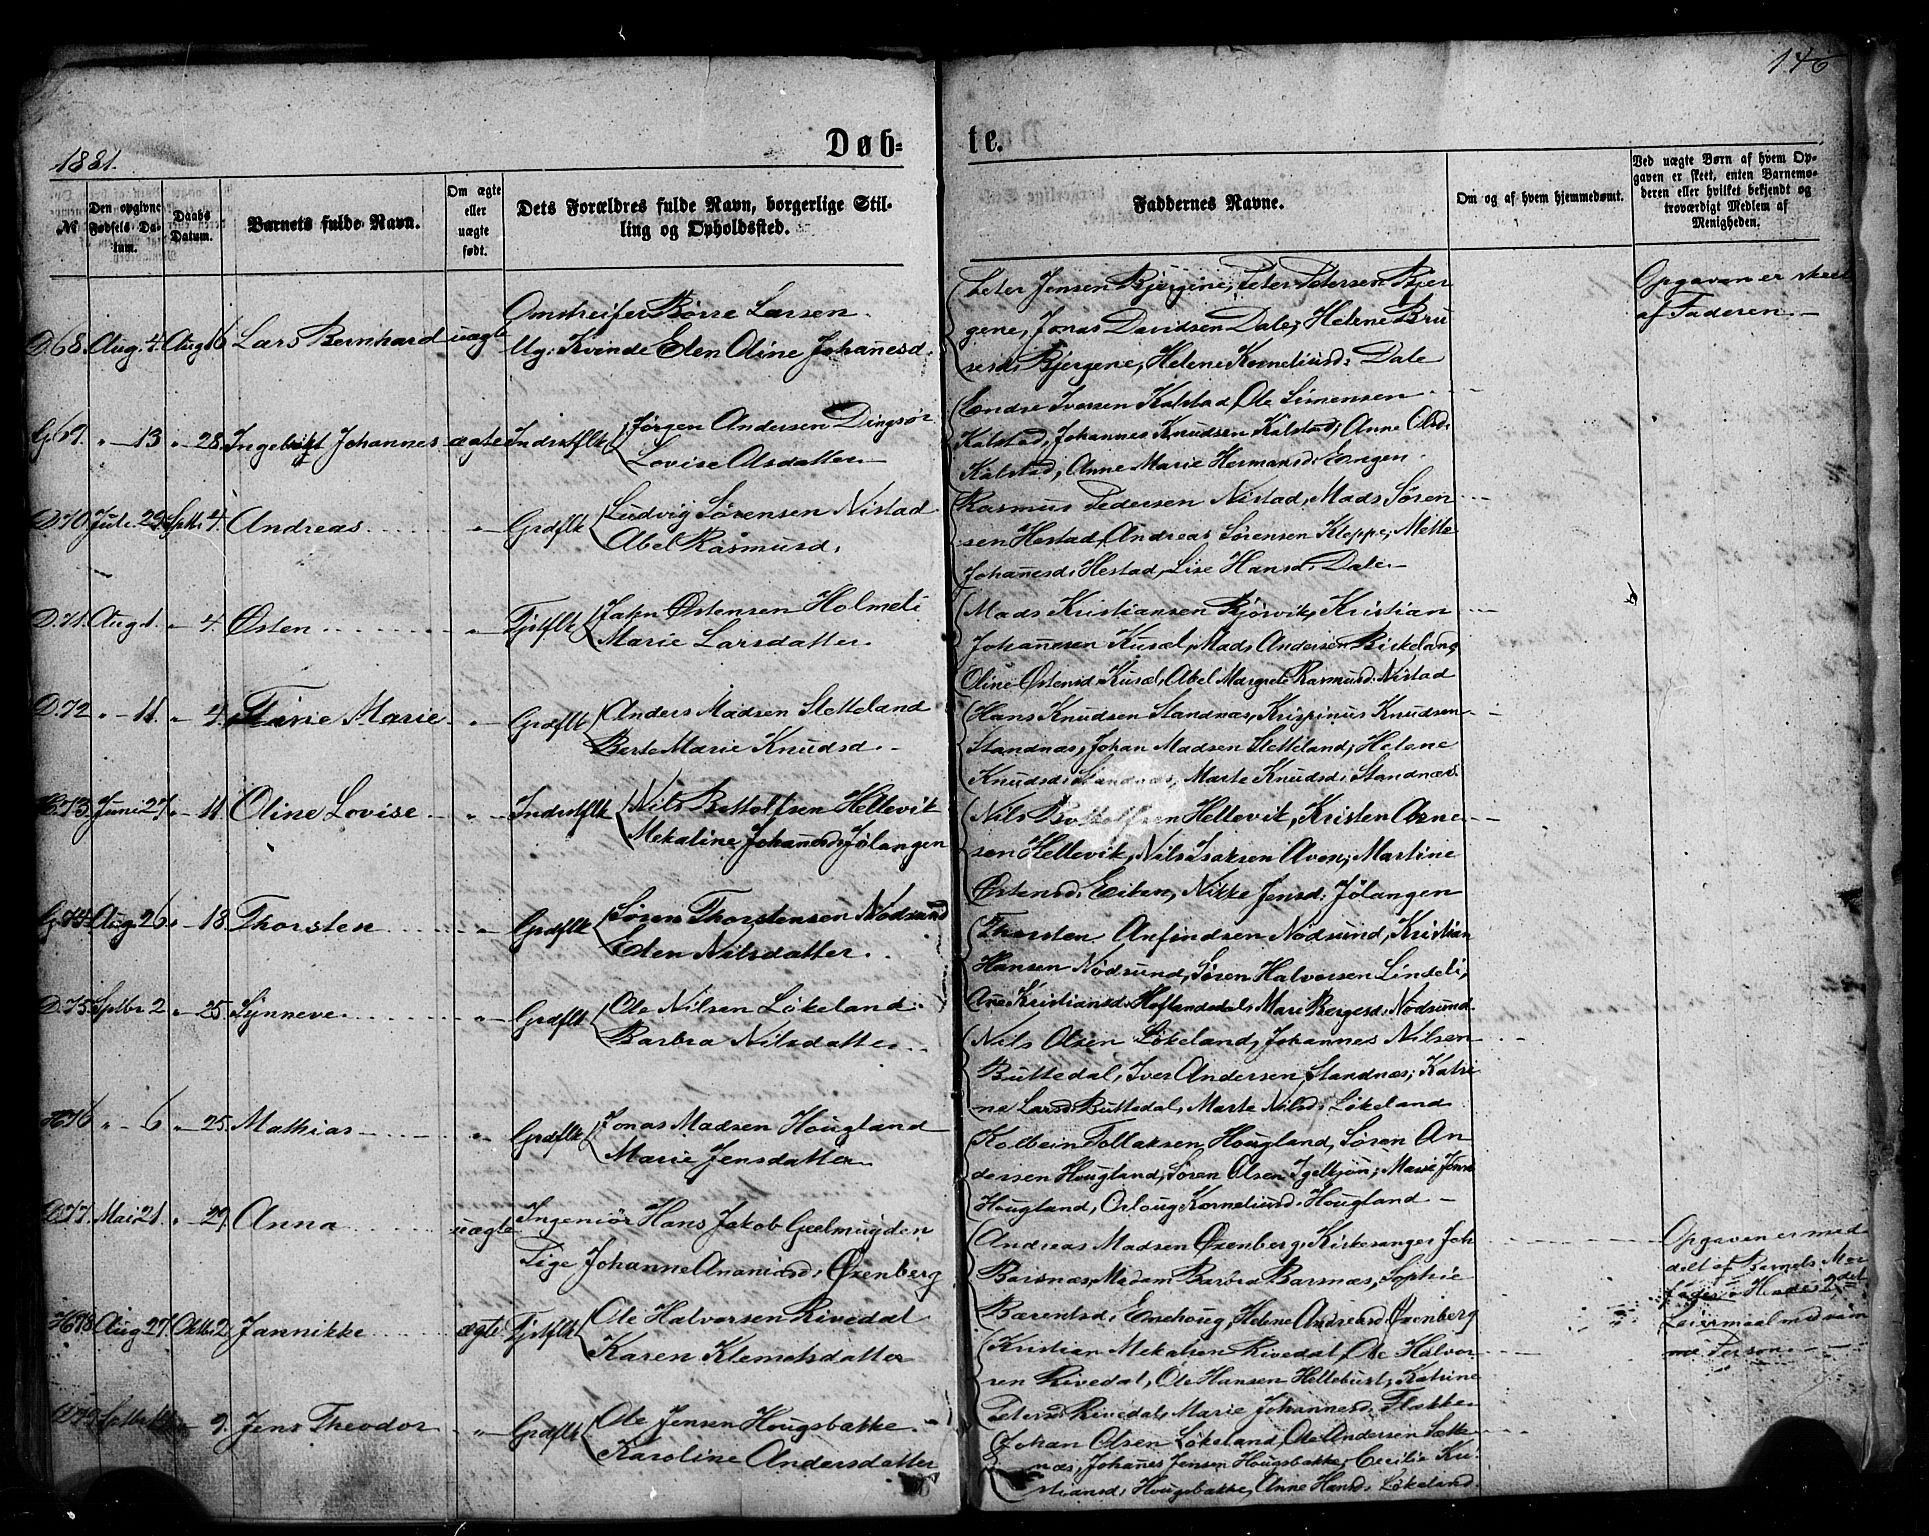 146
1881.
Døb-
te.
№
Den opgivne Fødsels Datum.
Daabs Datum.
Barnets fulde Navn.
Om ægte eller uægte født.
Dets Forældres fulde Navn, borgerlige Stilling og Opholdssted.
Faddernes Navne.
Om og af hvem hjemmedøbt.
Ved uægte Børn af hvem Opgaven er skeet, enten Barnemoderen eller hvilket bekjendt og troværdigt Medlem af Menigheden.
D.68. Aug. 4. Aug 16 Lars Bernhard uægte
Omstreifer Børre Larsen
Ug: Kvinde Elen Oline Johanesd:
Peter Jensen Bjergene, Peter Petersen Bjer
gene, Jonas Davidsen Dale, Helene Bru
sesd: Bjergene, Helene Korneliusd: Dale
Opgaven er skeet
af Faderen.
G69. " 13 " 28. Ingebrigt Johannes ægte Indrstflk
Jørgen Andersen Dingsør
Lovise Olsdatter
Endre Iversen Kalstad, Ole Simensen
Kalstad, Johannes Knudsen Kalstad, Anne Olsd:
Kalstad, Anne Marie Hermansd: Engen
D.70. Juli 29. Sptbr 4. Andreas " Grdflk
Ludvig Sørensen Nistad
Abel Rasmusd.
Rasmus Pedersen Nistad, Mads Søren
sen Hestad, Andreas Sørensen Kleppe, Mette
Johanesd: Hestad, Lise Hansd: Dale
D.71. Aug 1. " 4. Østen " Pjstflk
Jahn Østensen Holmeli
Marie Larsdatter
Mads Kristiansen Bjørvik, Kristian
Johannesen Kusæl, Mads Andersen Birkeland
Oline Østensd: Kusæl, Abel Margrete Rasmusd: Nistad
D.72 " 11. " 4. Marie " Grdflk
Anders Madsen Sletteland
Berte Marie Knudsd.
Hans Knudsen Standnæs, Krispinus Knudsen
Standnæs, Johan Madsen Sletteland, Helene
Knudsd: Standnæs, Marte Knudsd: Standnæs
H.73. Juni 27. " 11. Oline Lovise " Indrstflk
Nils Bottolfsen Hellevik
Mekaline Johanesd: Jølangen
Nils Bottolfsen Hellevik, Kristen Arne
sen Hellevik, Nils Isaksen Aven, Martine
Østensd: Eiken, Nikke Jensd: Jølangen
G.74. Aug. 26. " 18. Thorsten " Grdflk
Søren Thorstensen Nødsund
Elen Nilsdatter
Thorsten Anfindsen Nødsund, Kristian
Hansen Nødsund, Søren Halvorsen Lindeli,
Ane Kristiansd: Hoflandsdal, Mari Børgesd: Nødsund
D.75. Sptbr 2 " 25. Synneve " Grdflk
Ole Nilsen Løkeland
Barbra Nilsdatter
Nils Olsen Løkeland, Johannes Nilsen
Buttedal, Iver Andersen Standnæs, Katri
ne Larsd: Buttedal, Marte Nilsd: Løkeland
H76 " 6 " 25. Mathias " Grdflk
Jonas Madsen Hougland
Marie Jensdatter
Kolbein Tollaksen Hougland, Søren An
dersen Hougland, Søren Olsen Igelkjøn, Marie
Hougland, Korneliusd: Hougland
D.77. Mai 21. " 29. Anna uægte
Ingeniør Hans Jakob Gjelmuyden
Pige Johanne Ananiasd: Øxenberg
Andreas Madsen Øxenberg, Kirkesanger Joh
Barsnæs, Madam Barbra Barsnæs, Sophie
Bærentsd: Emehoug, Helene Andreasd: Øxenberg
Opgaven er med
delt af Barnets Mor
2det
Leiermaal med sam
me Person
H.78 Aug 27. Oktbr 2. Jannikke ægte Pjstflk
Ole Halvorsen Rivedal
Karen Klemetsdatter
Kristian Mekalsen Rivedal, Ole Halvor
sen Rivedal, Ole Hansen Hellebust, Katrine
Petersd: Rivedal, Marie Johannesd: Flekke
" 9. Jens Theodor " Grdflk
Ole Jensen Hougsbakke
Karoline Andersdatter
Johan Olsen Løkeland, Ole Andersen Sætte
næs, Johanes Jensen Hougsbakke, Cecilie Kri
stiansd: Hougsbakke, Anne Hansd: Løkeland